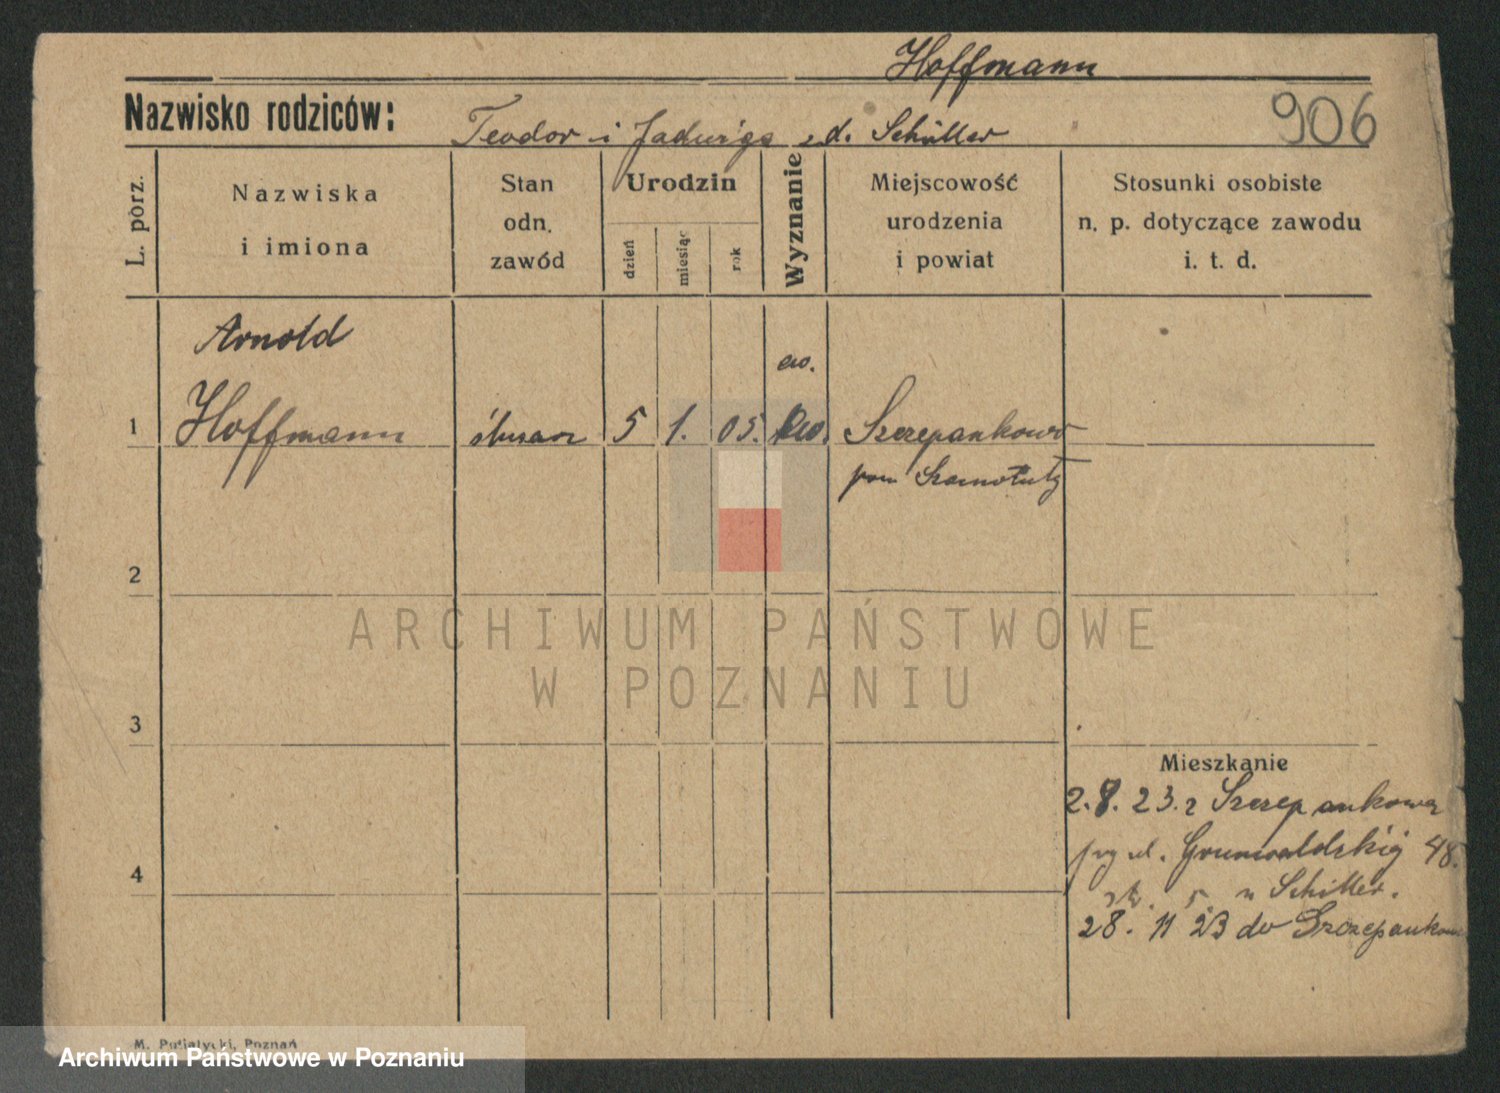 Hoffmann
Nazwisko rodziców: Teodor i Jadwiga z d. Schiller
906
L. porz.
Nazwiska
i imiona
Stan
odn.
zawód
Urodzin
dzień
miesiąc
rok
Wyznanie
Miejscowość
urodzenia
i powiat
Stosunki osobiste
n. p. dotyczące zawodu
i. t. d.
Arnold
ew.
1 Hoffmann ślusarz 5 1. 05. ew. Szczepankowo
pow Szamotuły
2
ARCHIWUM PAŃSTWOWE
W POZNANIU
3
Mieszkanie
2.8.23. z Szczepankowa
przy ul. Grunwaldzkiej 48.
5. u Schiller.
4
28. 11 23 do Szczepankowa
M. Putiatycki, Poznań
Archiwum Państwowe w Poznaniu